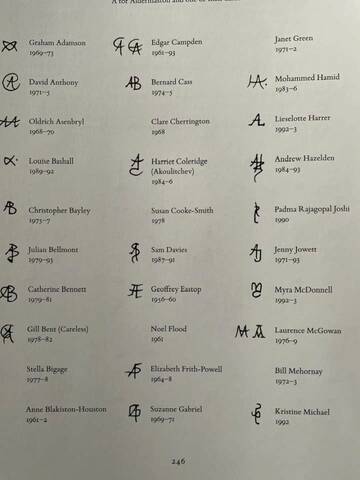 A for Aldermaston and one of
Graham Adamson
1969–73
David Anthony
1971–5
Oldrich Asenbryl
1968–70
Louise Bashall
1989–92
Christopher Bayley
1973–7
Julian Bellmont
1979–93
Catherine Bennett
1979–81
Gill Bent (Careless)
1978–82
Stella Bigage
1977–8
Anne Blakiston-Houston
1961–2
Edgar Campden
1961–93
Bernard Cass
1974–5
Clare Cherrington
1968
Harriet Coleridge
(Akoulitchev)
1984–6
Susan Cooke-Smith
1978
Sam Davies
1987–91
Geoffrey Eastop
1956–60
Noel Flood
1961
Elizabeth Frith-Powell
1964–8
Suzanne Gabriel
1969–71
Janet Green
1971–2
Mohammed Hamid
1983–6
Lieselotte Harrer
1992–3
Andrew Hazelden
1984–93
Padma Rajagopal Joshi
1990
Jenny Jowett
1971–93
Myra McDonnell
1992–3
Laurence McGowan
1976–9
Bill Mehornay
1972–3
Kristine Michael
1992
246